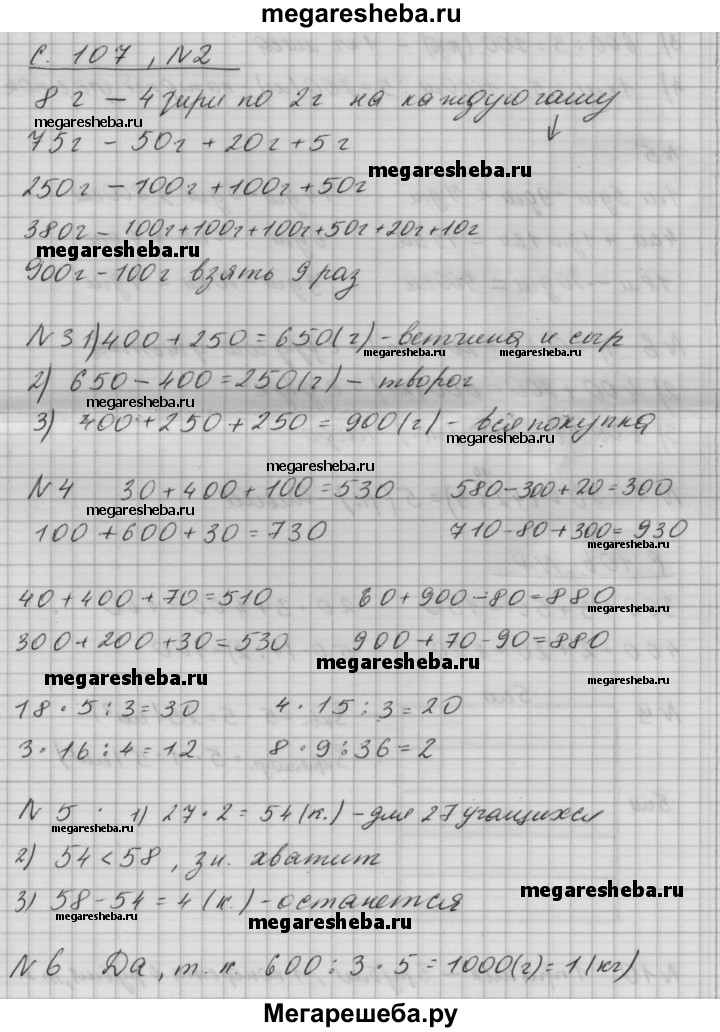 megaresheba.ru
С. 107, N2
8 г – 4 гири по 2г на каждую чашу
megaresheba.ru
75г – 50г + 20г + 5г
megaresheba.ru
250г – 100г + 100г + 50г
380г – 100г+100г+100г+50г+20г+10г
megaresheba.ru
900г – 100г взять 9 раз
N 3 1) 400 + 250 = 650 (г) – ветчина и сыр
megaresheba.ru megaresheba.ru
2) 650 – 400 = 250 (г) – творог
megaresheba.ru
3) 400 + 250 + 250 = 900 (г) – вся покупка
megaresheba.ru
megaresheba.ru
N 4 30 + 400 + 100 = 530 580 – 300 + 20 = 300
megaresheba.ru
100 + 600 + 30 = 730 710 – 80 + 300 = 930
megaresheba.ru
40 + 400 + 70 = 510 60 + 900 – 80 = 880
megaresheba.ru
300 + 200 + 30 = 530 900 + 70 – 90 = 880
megaresheba.ru
megaresheba.ru megaresheba.ru
18 · 5 : 3 = 30 4 · 15 : 3 = 20
3 · 16 : 4 = 12 8 · 9 : 36 = 2
N 5 1) 27 · 2 = 54 (к.) – для 27 учащихся
megaresheba.ru
2) 54 < 58, зн. хватит
3) 58 – 54 = 4 (к.) – останется
megaresheba.ru
megaresheba.ru megaresheba.ru
N 6 Да, т. к. 600 : 3 · 5 = 1000 (г) = 1 (кг)
Мегарешеба.ру